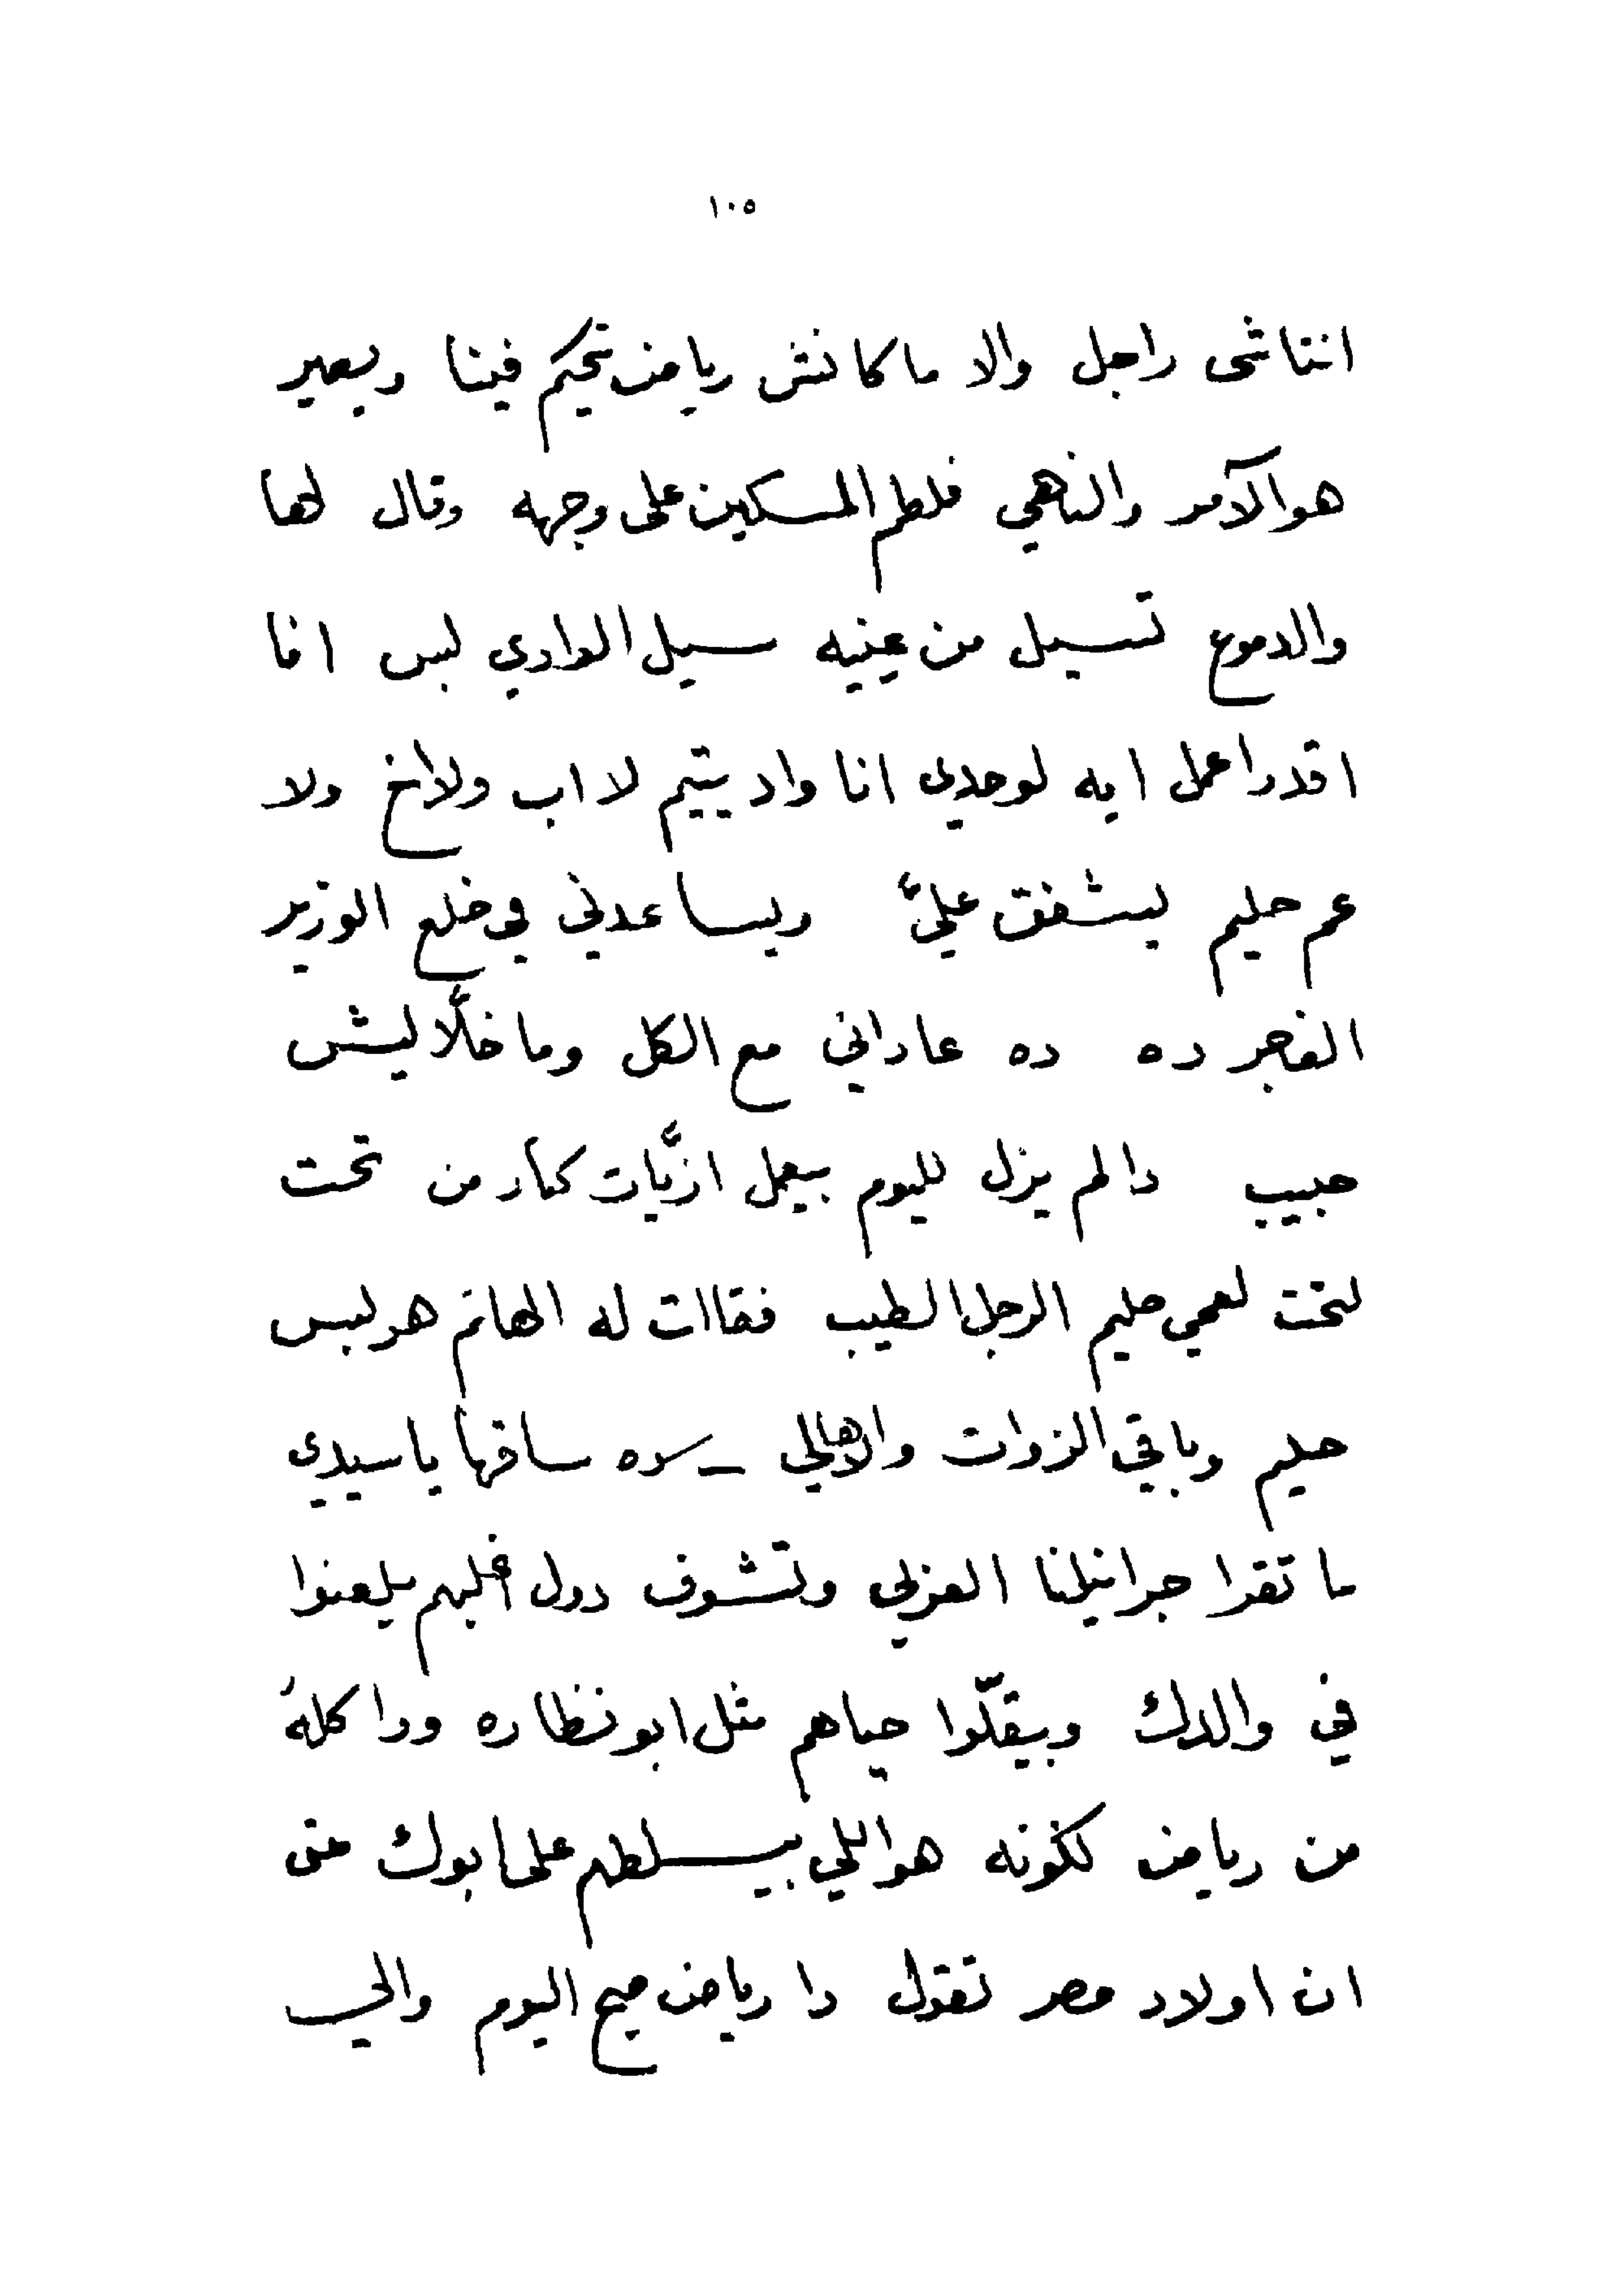 ١٠٥
انتاشى راجل والا ما كانش رياض تحكم فينا وبصير
هو الآمر والناهي فلطم المسكين على وجهه وقال لها
والدموع تسيل من عينيه سيل الوادي لبس انا
اقدر اعمل ايه لوحدي انا واد يتيم لا اب ولا اخ ولا
عم حليم ليشفق عليَّ ويساعدني في خلع الوزير
الفاجر ده ده عاداني مع الكل وما خلَّاليش
حبيب دا لم يزل لليوم بيعمل ازيَّات كتار من تحت
لتحت لعمي حليم الرجل الطيب فقالت له الهانم هو لبس
حليم وباقي الزوات والاهالي ـ سافها يا سيدي
ما تقرا جرانيلنا العزلي وتشوف دول اغلبهم يلعنوا
في والدك وبيقلّوا حياهم مثل ابو نظاره ودا كله
من رياض لكونه هو اللي بيسلطهم على ابوك حتى
ان اولاد مصر تقول دا رياض صبح اليوم والي